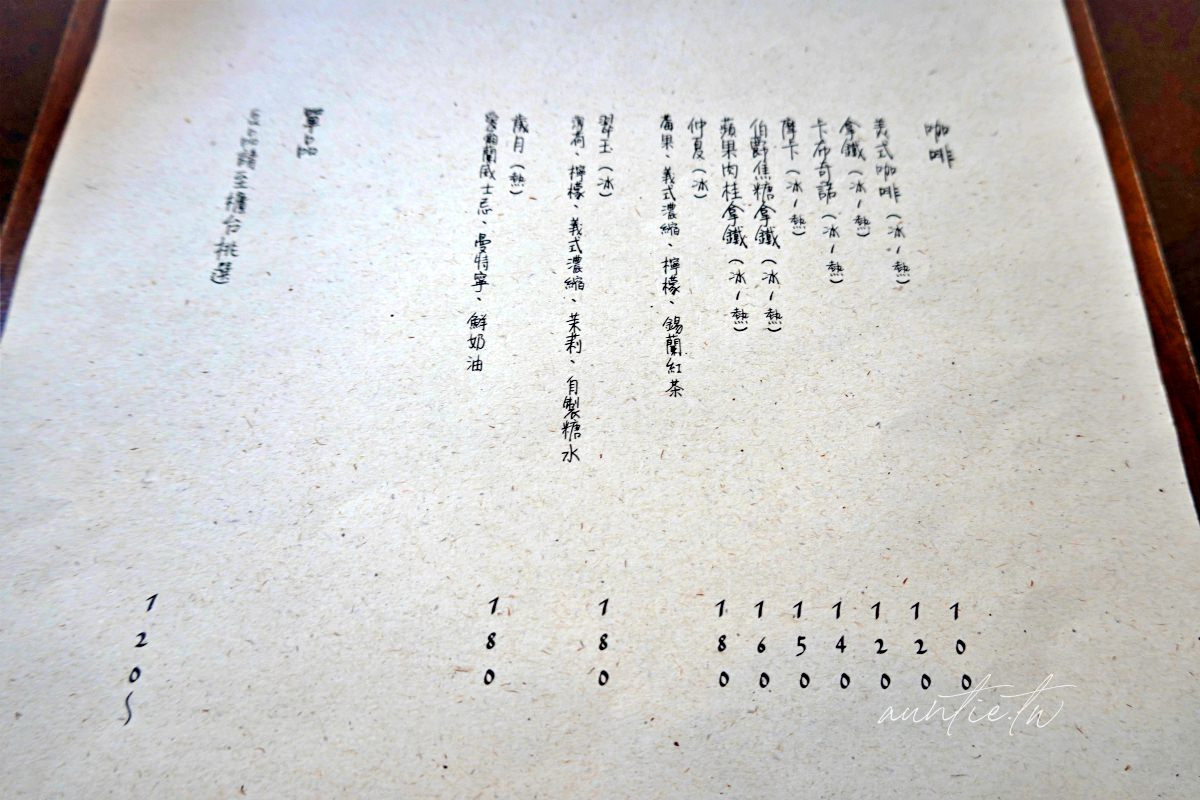 咖啡
美式咖啡(冰/熱) 100
拿鐵(冰/熱) 120
卡布奇諾(冰/熱) 120
摩卡(冰/熱) 140
伯爵焦糖拿鐵(冰/熱) 150
蘋果肉桂拿鐵(冰/熱) 160
仲夏(冰) 180
蘋果、義式濃縮、檸檬、錫蘭紅茶
翠玉(冰) 180
薄荷、檸檬、義式濃縮、茉莉、自製糖水
歲月(熱) 180
愛爾蘭威士忌、曼特寧、鮮奶油
單品
豆品請至櫃台挑選 120~
auntie.tw